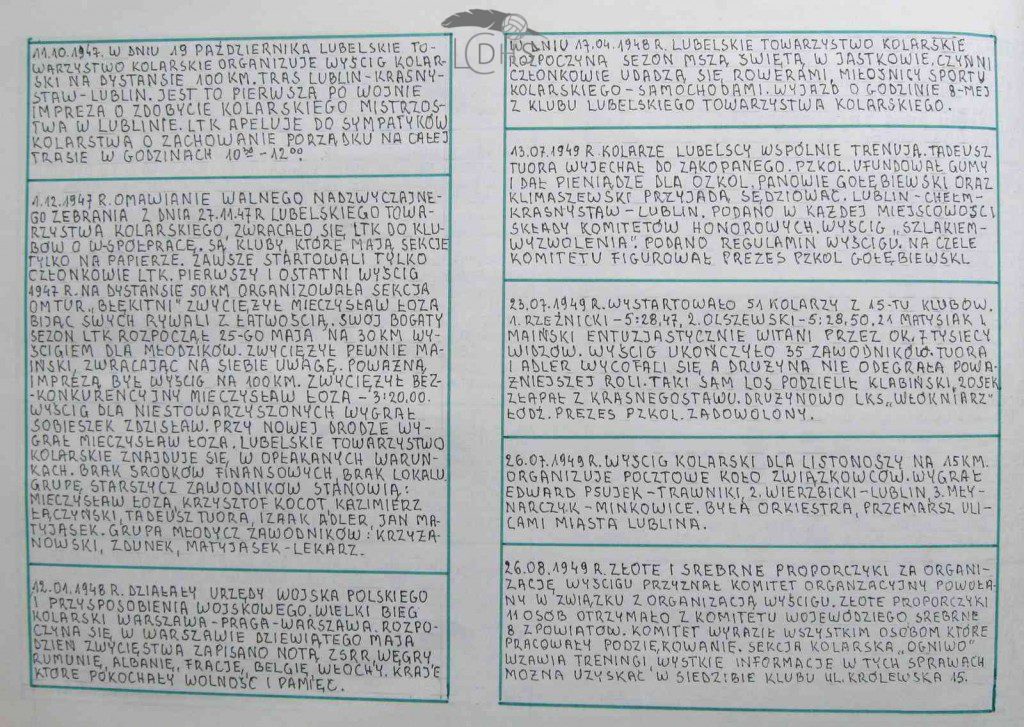 11.10.1947. W DNIU 19 PAŹDZIERNIKA LUBELSKIE TO-
WARZYSTWO KOLARSKIE ORGANIZUJE WYŚCIG KOLAR-
SKI NA DYSTANSIE 100 KM. TRAS LUBLIN-KRASNY-
STAW-LUBLIN. JEST TO PIERWSZA PO WOJNIE
IMPREZA O ZDOBYCIE KOLARSKIEGO MISTRZOS-
TWA W LUBLINIE. LTK APELUJE DO SYMPATYKÓW
KOLARSTWA O ZACHOWANIE PORZĄDKU NA CAŁEJ
TRASIE W GODZINACH 10 - 12
1.12.1947 R. OMAWIANIE WALNEGO NADZWYCZAJNE-
GO ZEBRANIA Z DNIA 27.11.47R LUBELSKIEGO TOWA-
RZYSTWA KOLARSKIEGO, ZWRACAŁO SIĘ LTK DO KLU-
BÓW O WSPÓŁPRACĘ. SĄ, KLUBY, KTÓRE MAJĄ SEKCJE
TYLKO NA PAPIERZE. ZAWSZE STARTOWALI TYLKO
CZŁONKOWIE LTK. PIERWSZY I OSTATNI WYŚCIG
1947 R. NA DYSTANSIE 50 KM ORGANIZOWAŁA SEKCJA
OMTUR „BŁĘKITNI” ZWYCIĘŻYŁ MIECZYSŁAW ŁOZA
BIJĄC SWYCH RYWALI Z ŁATWOŚCIĄ. SWÓJ BOGATY
SEZON LTK ROZPOCZĄŁ 25-GO MAJA NA 30 KM WY-
ŚCIGIEM DLA MŁODZIKÓW. ZWYCIĘŻYŁ PEWNIE MA-
IŃSKI, ZWRACAJĄC NA SIEBIE UWAGĘ. POWAŻNĄ
IMPREZĄ BYŁ WYŚCIG NA 100KM. ZWYCIĘŻYŁ BEZ-
-KONKURENCYJNY MIECZYSŁAW ŁOZA - 3:20,00.
WYŚCIG DLA NIESTOWARZYSZONYCH WYGRAŁ
SOBIESZEK ZDZISŁAW. PRZY NOWEJ DRODZE WY-
GRAŁ MIECZYSŁAW ŁOZA. LUBELSKIE TOWARZYSTWO
KOLARSKIE ZNAJDUJE SIĘ, W OPŁAKANYCH WARUN-
KACH. BRAK ŚRODKÓW FINANSOWYCH, BRAK LOKALU
GRUPĘ, STARSZYCZ ZAWODNIKÓW STANOWIĄ:
MIECZYSŁAW ŁOZA, KRZYSZTOF KOCOT, KAZIMIERZ
ŁĄCZYŃSKI, TADEUSZ TUORA, IZAAK ADLER, JAN MA-
TYJASEK. GRUPA MŁODYCZ ZAWODNIKÓW: KRZYŻA-
NOWSKI, ZDUNEK, MATYJASEK-LEKARZ.
12.01.1948 R. DZIAŁAŁY URZĘDY WOJSKA POLSKIEGO
I PRZYSPOSOBIENIA WOJSKOWEGO. WIELKI BIEG
KOLARSKI WARSZAWA-PRAGA-WARSZAWA. ROZPO-
CZYNA SIĘ, W WARSZAWIE DZIEWIĄTEGO MAJA
DZIEŃ ZWYCIĘSTWA ZAPISANO NOTĄ ZSRR, WĘGRY,
RUMUNIĘ, ALBANIĘ, FRACJĘ, BELGIĘ, WŁOCHY. KRAJE
KTÓRE POKOCHAŁY WOLNOŚĆ I PAMIĘĆ.
W DNIU 17.04.1948 R. LUBELSKIE TOWARZYSTWO KOLARSKIE
ROZPOCZYNA SEZON MSZĄ ŚWIĘTĄ W JASTKOWIE. CZYNNI
CZŁONKOWIE UDADZĄ SIĘ ROWERAMI, MIŁOŚNICY SPORTU
KOLARSKIEGO - SAMOCHODAMI. WYJAZD O GODZINIE 8-MEJ
Z KLUBU LUBELSKIEGO TOWARZYSTWA KOLARSKIEGO.
13.07.1949 R. KOLARZE LUBELSCY WSPÓLNIE TRENUJĄ. TADEUSZ
TUORA WYJECHAŁ DO ZAKOPANEGO. PZKOL. UFUNDOWAŁ GUMY
I DAŁ PIENIĄDZE DLA OZKOL. PANOWIE GOŁĘBIEWSKI ORAZ
KLIMASZEWSKI PRZYJADĄ SĘDZIOWAĆ. LUBLIN-CHEŁM-
KRASNYSTAW-LUBLIN. PODANO W KAŻDEJ MIEJSCOWOŚCI
SKŁADY KOMITETÓW HONOROWYCH. WYŚCIG „SZLAKIEM-
WYZWOLENIA”. PODANO REGULAMIN WYŚCIGU. NA CZELE
KOMITETU FIGUROWAŁ PREZES PZKOL GOŁĘBIEWSKI.
23.07.1949 R. WYSTARTOWAŁO 51 KOLARZY Z 15-TU KLUBÓW.
1. RZEŹNICKI - 5:28,47, 2. OLSZEWSKI - 5:28,50, 21 MATYSIAK I
MAIŃSKI ENTUZJASTYCZNIE WITANI PRZEZ OK. 7 TYSIĘCY
WIDZÓW. WYŚCIG UKOŃCZYŁO 35 ZAWODNIKÓW. TUORA
I ADLER WYCOFALI SIĘ A DRUŻYNA NIE ODEGRAŁA POWA-
ŻNIEJSZEJ ROLI. TAKI SAM LOS PODZIELIŁ KLABIŃSKI, ZOJEK
ZŁAPAŁ Z KRASNEGOSTAWU. DRUŻYNOWO LKS „WŁÓKNIARZ”
ŁÓDŹ. PREZES PZKOL. ZADOWOLONY.
26.07.1949 R. WYŚCIG KOLARSKI DLA LISTONOSZY NA 15KM.
ORGANIZUJE POCZTOWE KOŁO ZWIĄZKOWCÓW. WYGRAŁ
EDWARD PSUJEK - TRAWNIKI, 2. WIERZBICKI - LUBLIN 3. MŁY-
NARCZYK - MINKOWICE. BYŁA ORKIESTRA, PRZEMARSZ ULI-
CAMI MIASTA LUBLINA.
26.08.1949 R. ZŁOTE I SREBRNE PROPORCZYKI ZA ORGANI-
ZACJĘ WYŚCIGU PRZYZNAŁ KOMITET ORGANZACYJNY POWOŁA-
NY W ZWIĄZKU Z ORGANIZACJĄ WYŚCIGU. ZŁOTE PROPORCZYKI
11 OSÓB OTRZYMAŁO Z KOMITETU WOJEWÓDZIEGO SREBRNE
8 Z POWIATÓW. KOMITET WYRAZIŁ WSZYSTKIM OSOBOM KTÓRE
PRACOWAŁY PODZIĘKOWANIE. SEKCJA KOLARSKA „OGNIWO”
WZAWIA TRENINGI, WYSTKIE INFORMACJE W TYCH SPRAWACH
MOŻNA UZYSKAĆ W SIEDZIBIE KLUBU UL. KRÓLEWSKA 15.